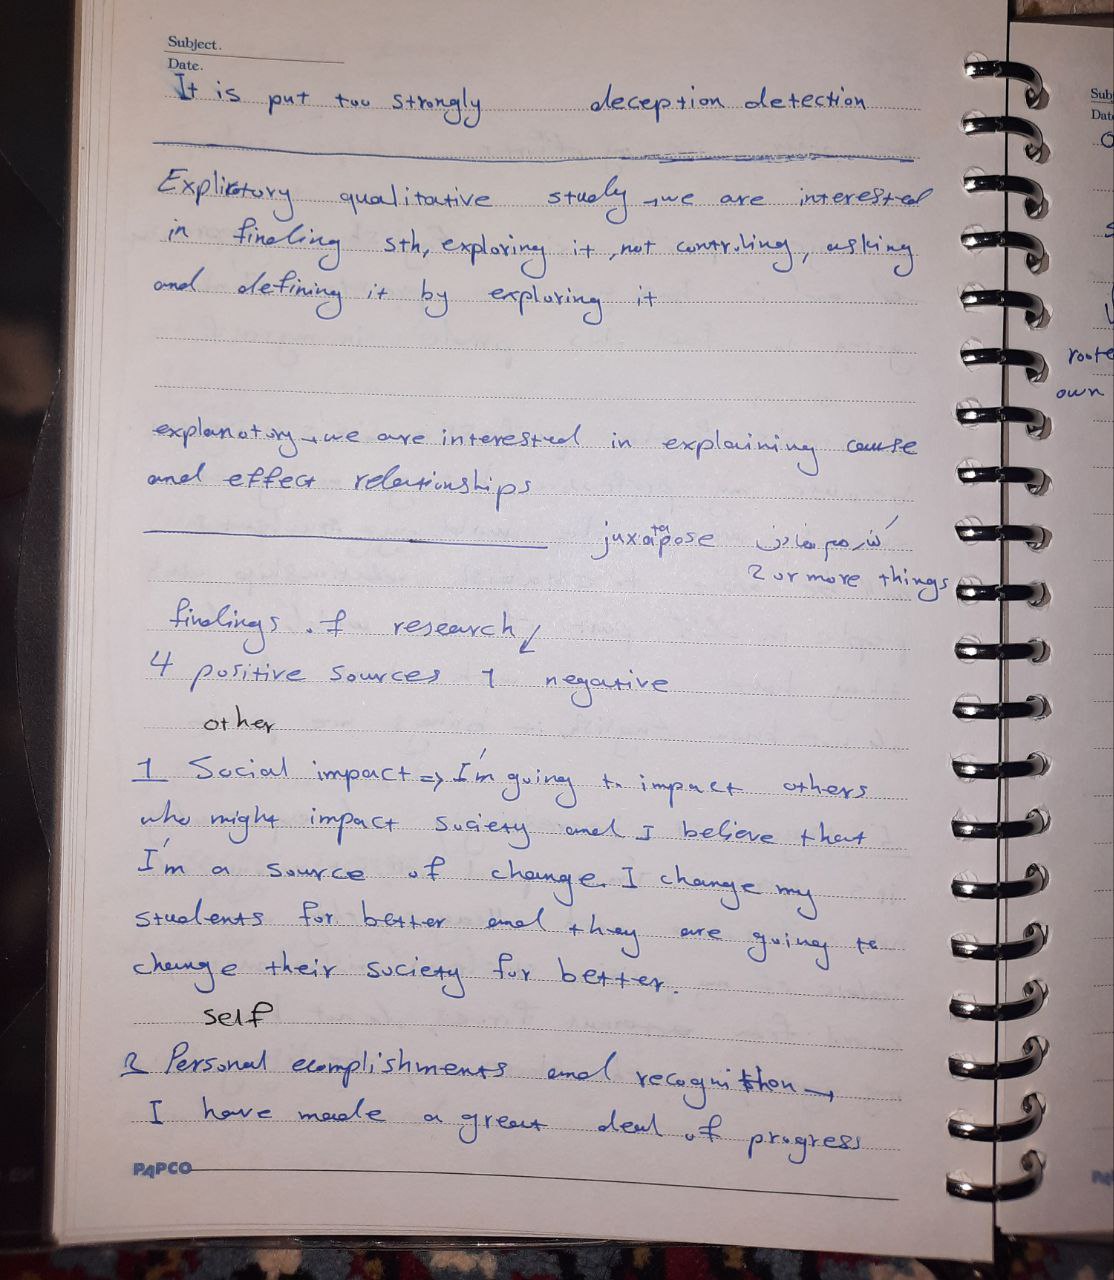 Subject.
Date.
It is put too strongly deception detection
Expliratory qualitative study → we are interested
in finding sth, exploring it, not controling, asking
and defining it by exploring it
explanatory → we are interested in explaining cause
and effect relationships
juxtapose کنار هم
2 or more things
findings of research ↙
4 positive sources 1 negative
other
1 Social impact => I'm going to impact others
who might impact society and I believe that
I'm a source of change. I change my
students for better and they are going to
change their society for better.
self
2 Personal ecomplishments and recognition →
I have made a great deal of progress
PAPCO
Sub
Date
roote
own